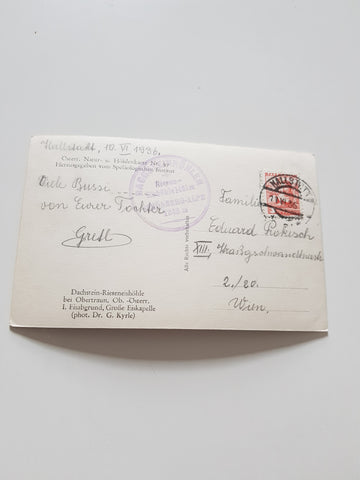 Hallstatt, 10. VI 1936.
Österr. Natur- u. Höhlenkarte Nr. 87
Herausgegeben vom Speläologischen Institut
Viele Bussi
von Eurer Tochter
Gretl
Dachstein-Rieseneishöhle
bei Obertraun, Ob.-Österr.
I. Eisabgrund, Große Eiskapelle
(phot. Dr. G. Kyrle)
Alle Rechte vorbehalten
Riesen-
HALLSTATT
Familie
Eduard Prokisch
XIII,
2./20.
Wien.